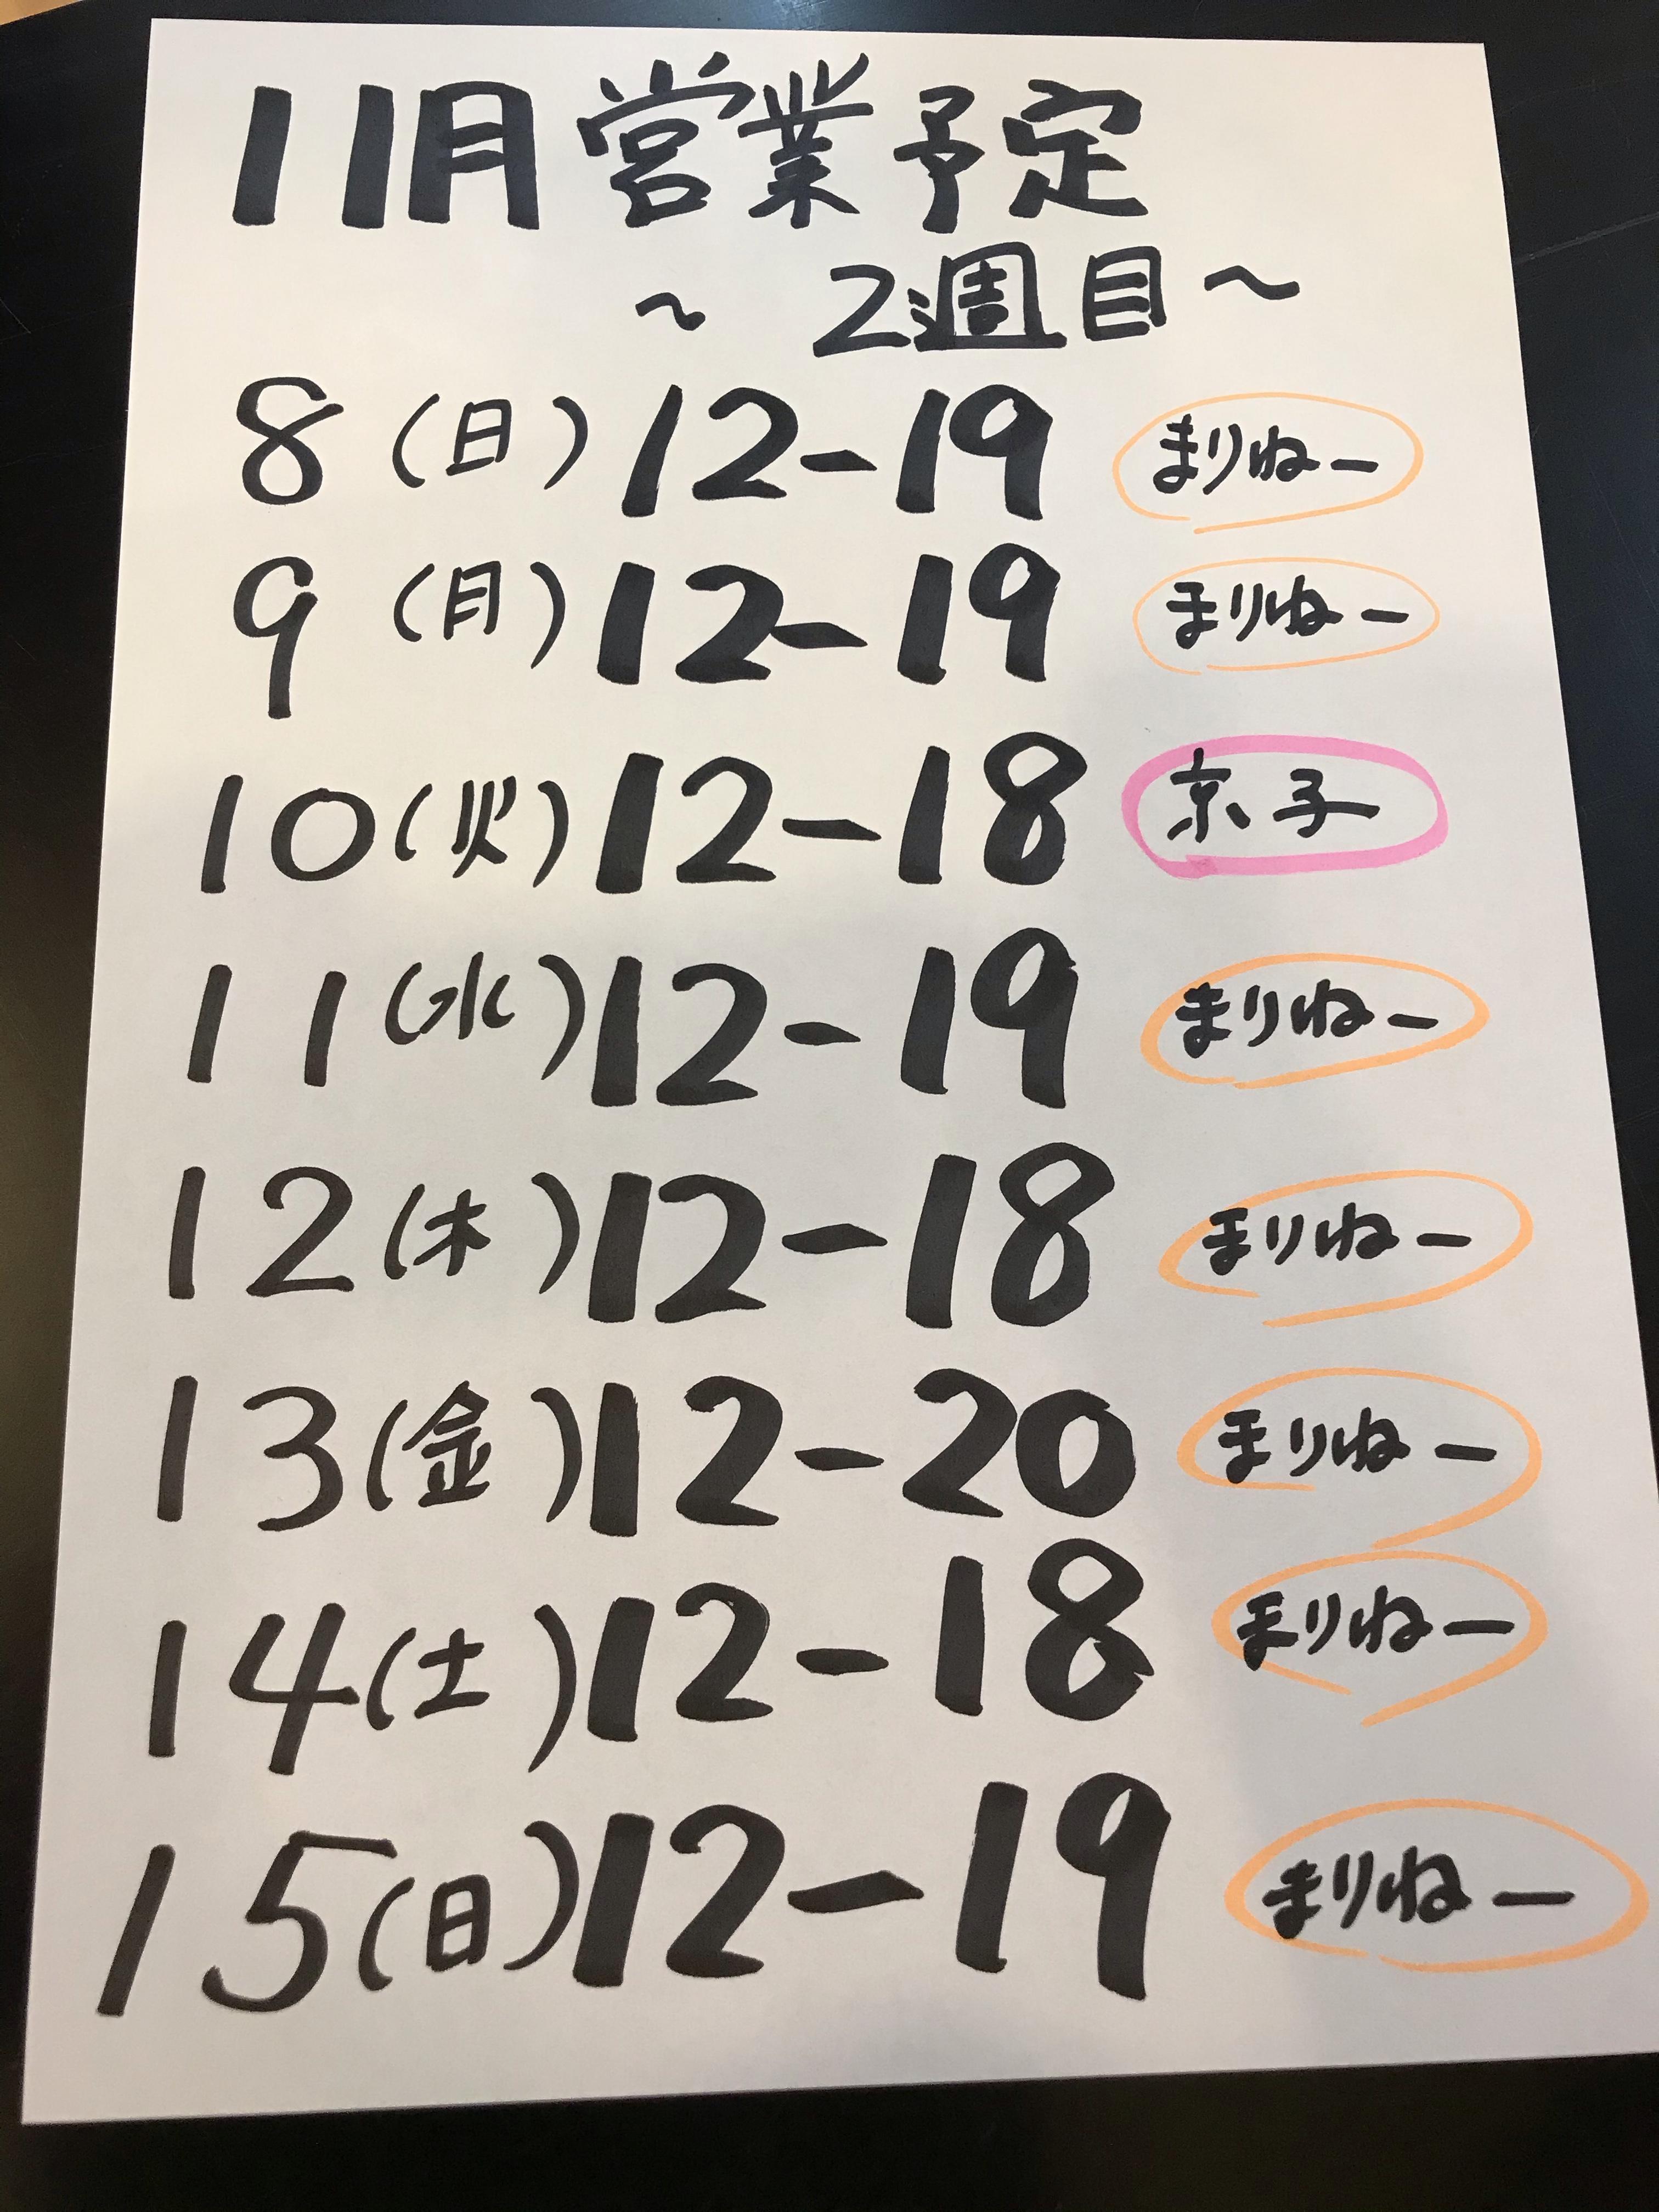 11月営業予定
〜 2週目〜
8(日)12-19 まりねー
9(月)12-19 まりねー
10(火)12-18 京子
11(水)12-19 まりねー
12(木)12-18 まりねー
13(金)12-20 まりねー
14(土)12-18 まりねー
15(日)12-19 まりねー